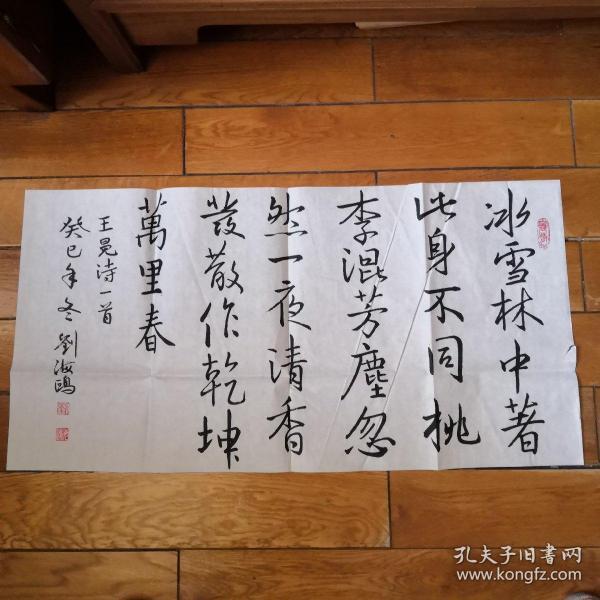 冰雪林中著
此身不同桃
李混芳塵忽
然一夜清香
發散作乾坤
萬里春
王冕诗一首
癸巳年冬劉海鸥
孔夫子旧书网
www.kongfz.com